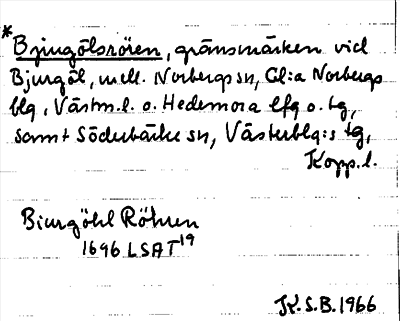 * Bjurgölsrören, gränsmärken vid
Bjurgöl, mell. Norbergs sn, Gl:a Norbergs
blg, Västm.l. o. Hedemora lfg o. tg,
samt Söderbärke sn, Västerblg:s tg,
Kopp.l.
Biurgöhl Röhren
1696 LSAT 19
K.S.B. 1966